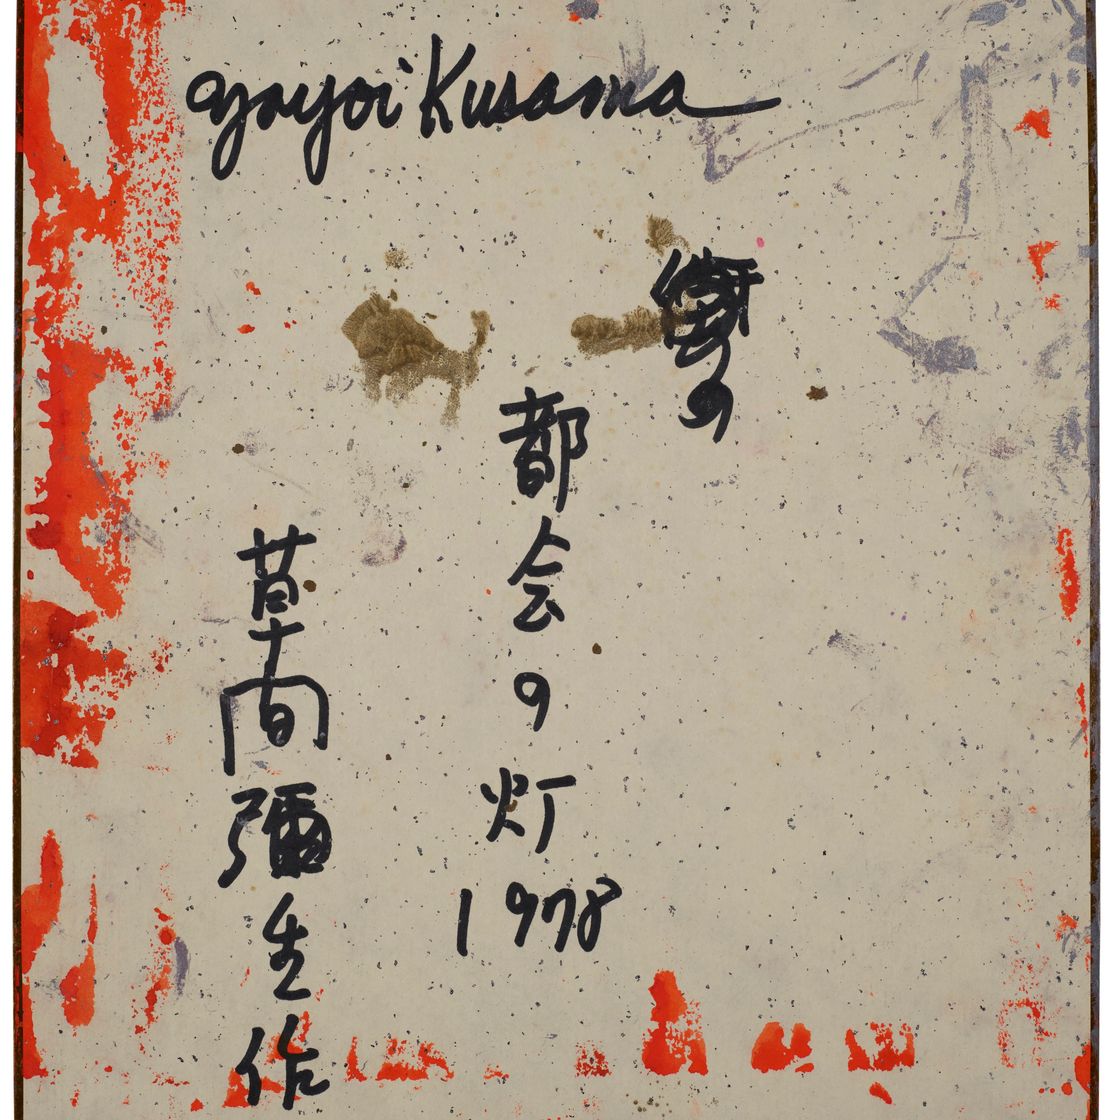 yayoi Kusama
の
都会の灯
1978
草間彌生作